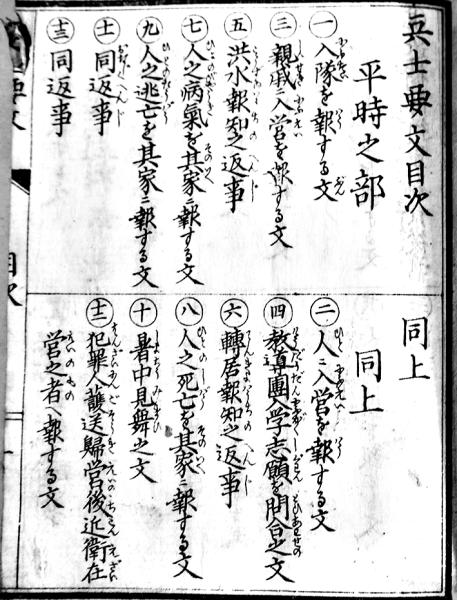 兵士要文目次
同上
平時之部
同上
一 入隊を報する文
二 人ニ入營を報する文
三 親戚ニ入營を報する文
四 教導團入學志願を問合之文
五 洪水報知之返事
六 轉居報知之返事
七 人之病氣を其家ニ報する文
八 人之死亡を其家ニ報する文
九 人之逃亡を其家ニ報する文
十 暑中見舞之文
十一 同返事
十二 犯罪人護送歸營後近衛在
營之者へ報する文
十三 同返事
要文
目次